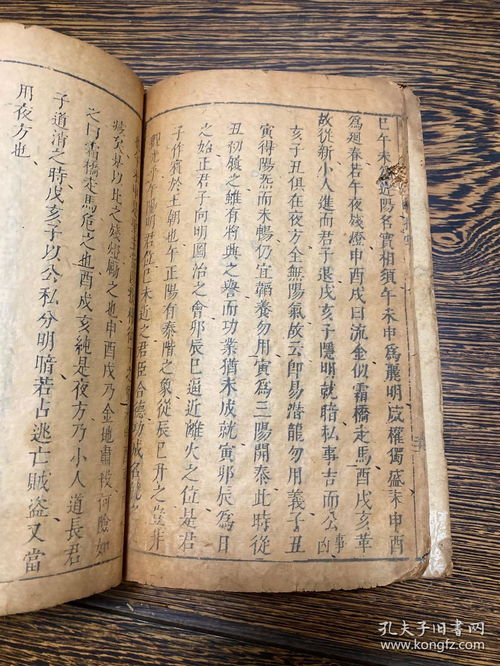 巳午未為近陽名實相須午未申為麗明威權獨盛未申酉
為廻春若午夜燈申酉戌曰流金似霜橋走馬酉戌亥革
故從新小人進而君子退戌亥子隱明就暗私事吉而公事凶
亥子丑俱在夜方全無陽氣故云即易潛龍勿用義子丑
寅得陽炁而未暢仍宜韜養勿用寅為三陽開泰此時從
丑初獲之雖有將興之譽而功業猶未成就寅卯辰為日
之始正君子向明圖治之會卯辰巳逼近離火之位是君
子作賓於王朝也午正陽有泰階之象從辰巳升之登
午陽明君位巳未近之君臣合德功成名就
之曰霜橋走馬危之也酉戌亥純是夜方乃小人道長君
子道消之時戌亥子以公私分明暗若占逃亡賊盗又當
用夜方也
孔夫子旧书网
www.kongfz.com